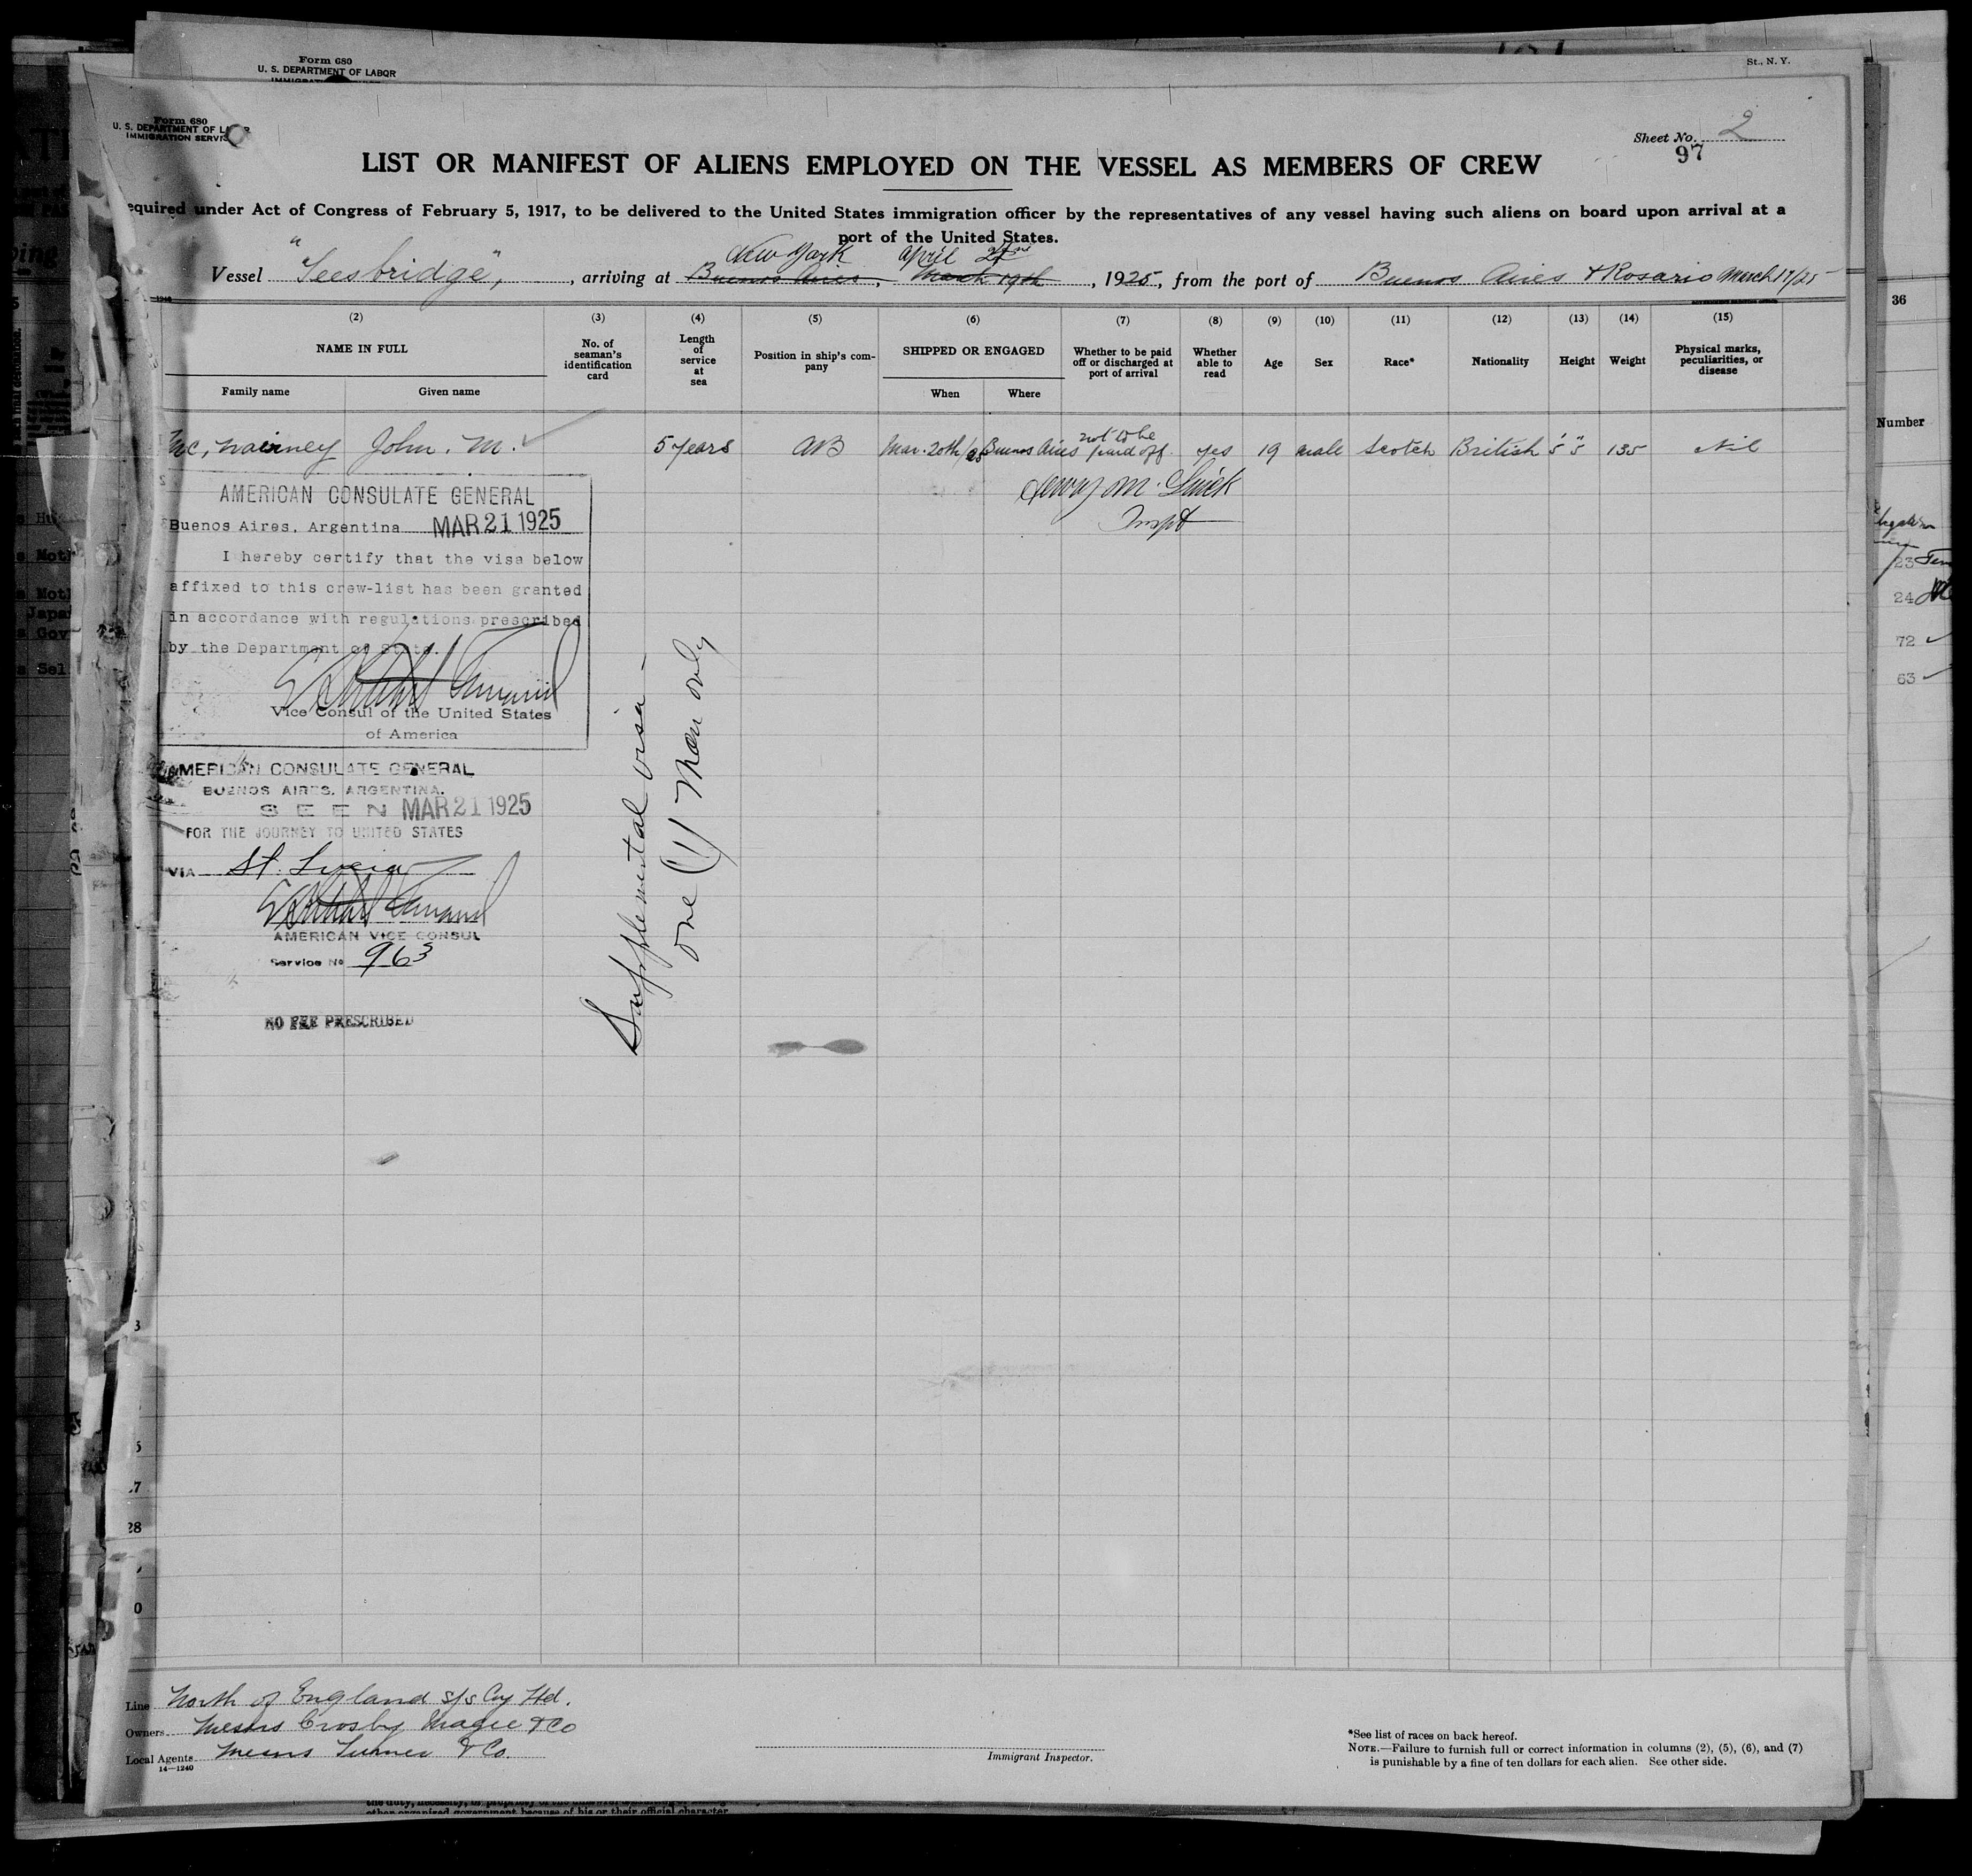 Form 680
U. S. DEPARTMENT OF LABOR
St., N. Y.
Form 680
U. S. DEPARTMENT OF LABOR
IMMIGRATION SERVICE
Sheet No. 2
97
LIST OR MANIFEST OF ALIENS EMPLOYED ON THE VESSEL AS MEMBERS OF CREW
equired under Act of Congress of February 5, 1917, to be delivered to the United States immigration officer by the representatives of any vessel having such aliens on board upon arrival at a
port of the United States.
New York April
Vessel "Teesbridge", arriving at Buenos Aires, March 19th, 1925, from the port of Buenos Aires & Rosario March 17/25
(2) (3) (4) (5) (6) (7) (8) (9) (10) (11) (12) (13) (14) (15)
NAME IN FULL
Family name Given name
No. of seaman's identification card
Length of service at sea
Position in ship's company
SHIPPED OR ENGAGED
When Where
Whether to be paid off or discharged at port of arrival
Whether able to read
Age
Sex
Race*
Nationality
Height
Weight
Physical marks, peculiarities, or disease
Mc, Nairney John. M. 5 years AB Mar. 20th/25 Buenos Aires not to be paid off. yes 19 male Scotch British 5' 5" 135 Nil
Inspt
AMERICAN CONSULATE GENERAL
Buenos Aires, Argentina MAR 21 1925
I hereby certify that the visa below
affixed to this crew-list has been granted
in accordance with regulations prescribed
by the Department of State.
Vice Consul of the United States
of America
AMERICAN CONSULATE GENERAL
BUENOS AIRES, ARGENTINA.
SEEN MAR 21 1925
FOR THE JOURNEY TO UNITED STATES
VIA St. Lucia
AMERICAN VICE CONSUL
Service No 963
NO FEE PRESCRIBED
Supplemental visa -
one (1) Man only
36
Number
23
24
72
63
28
Line North of England S/S Coy Ltd.
Owners Messrs Crosby Magee & Co
Local Agents Messrs Turner & Co.
14—1240
Immigrant Inspector.
*See list of races on back hereof.
NOTE.—Failure to furnish full or correct information in columns (2), (5), (6), and (7)
is punishable by a fine of ten dollars for each alien. See other side.